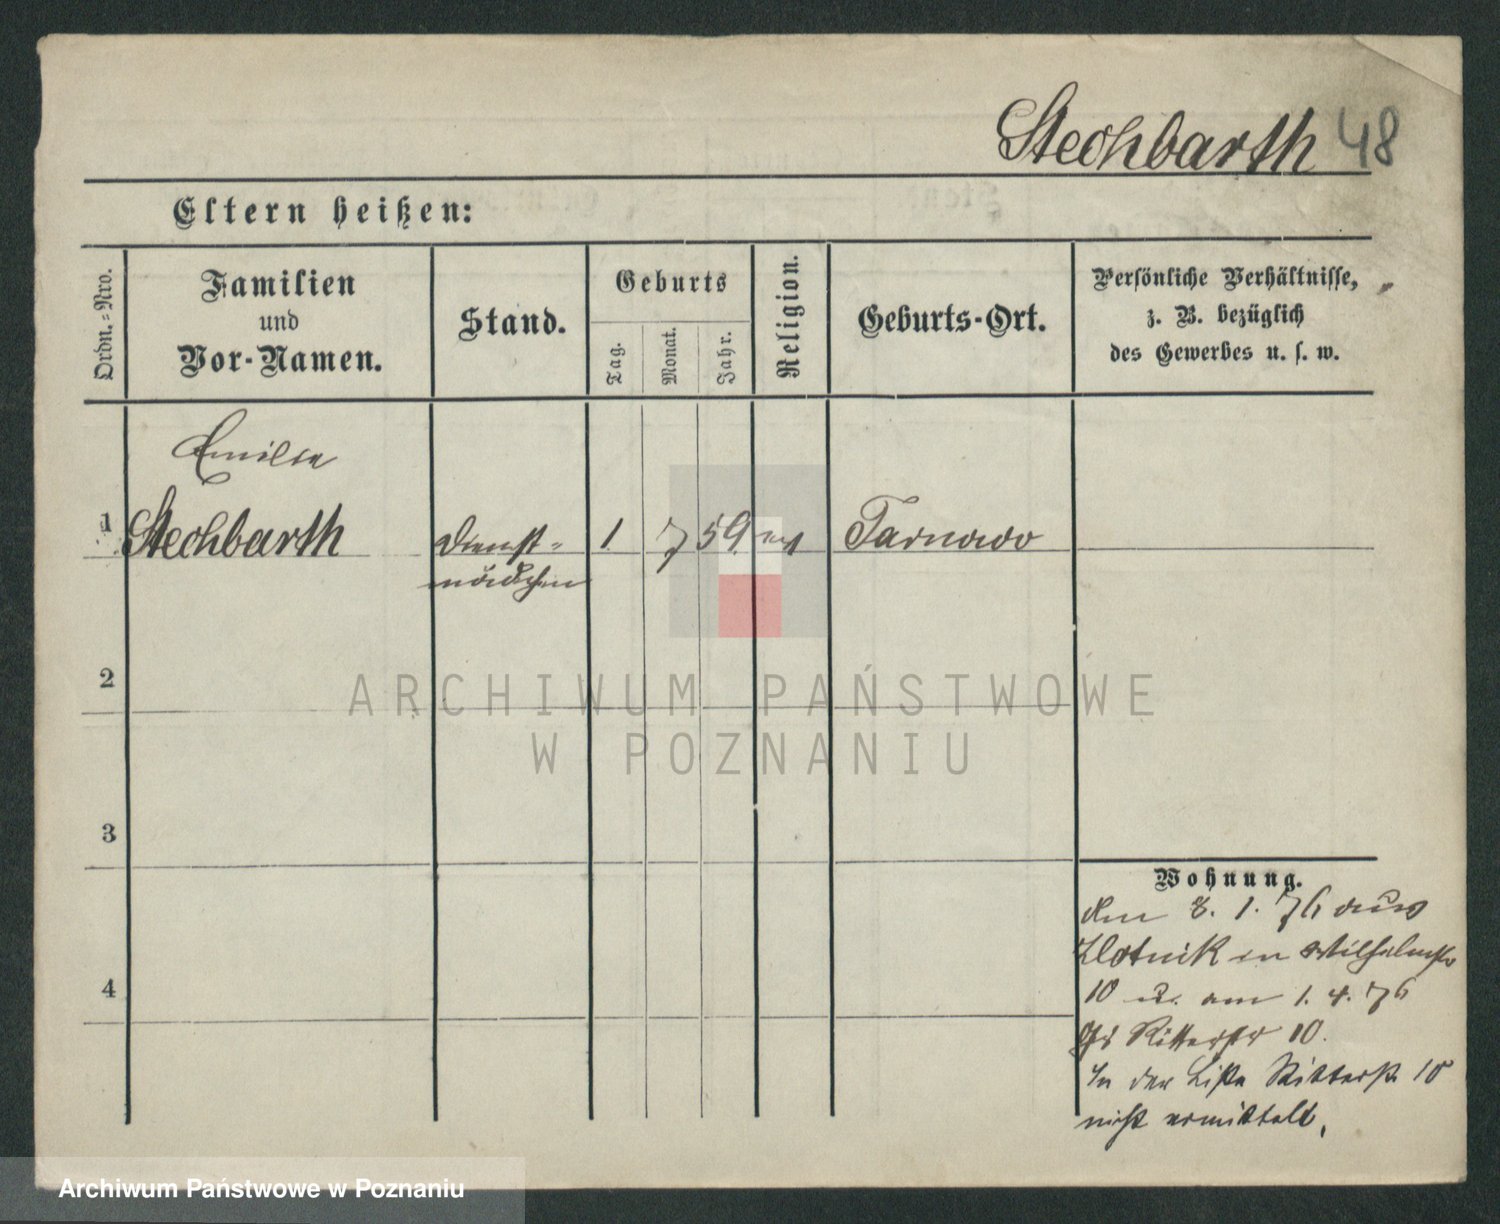 Stechbarth 48
Eltern heißen:
Ordn.-Nro.
Familien
und
Vor-Namen.
Stand.
Geburts
Tag.
Monat.
Jahr.
Religion.
Geburts-Ort.
Persönliche Verhältnisse,
z. B. bezüglich
des Gewerbes u. s. w.
Emilie
1 Stechbarth Dienst- 1 7 59 ev Tarnowo
mädchen
2
3
4
ARCHIWUM PAŃSTWOWE
W POZNANIU
Wohnung.
den 8. 1. 76 aus
Zlotnik in Wilhelmstr
10 u. am 1. 4. 76
Ritterstr 10.
In der Liste Ritterstr 10
nicht ermittelt.
Archiwum Państwowe w Poznaniu